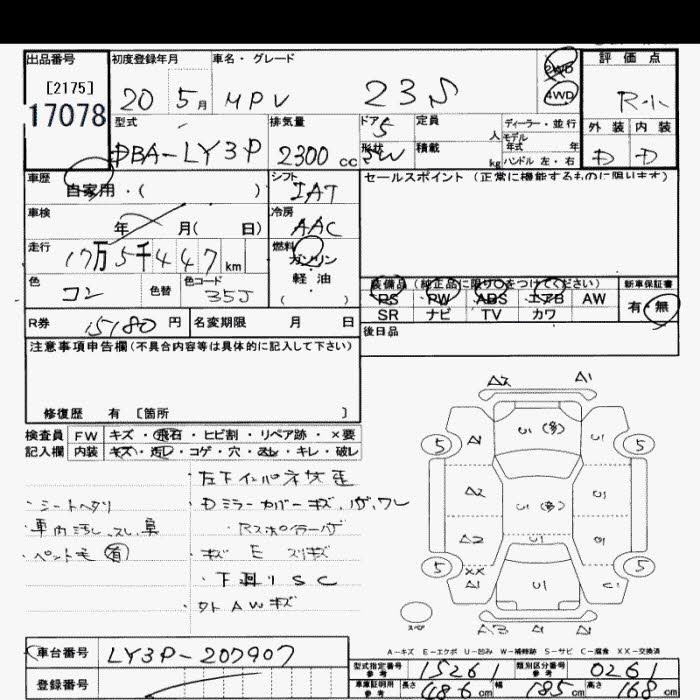 出品番号
[2175]
17078
初度登録年月
20 5月
車名・グレード
MPV 23S
2WD
4WD
評価点
R-小
型式
DBA-LY3P
排気量
2300 cc
ドア 5
形状 SW
定員 人
積載 kg
ディーラー・並行
モデル
年式 年
ハンドル 左・右
外装 内装
D D
車歴
自家用・( )
シフト
IAT
セールスポイント (正常に機能するものに限ります)
車検
年 月( 日)
冷房
AAC
走行
17万5千447 km
燃料
ガソリン
軽油
( )
色
コン
色替
色コード
35J
装備品 (純正品に限り○をつけてください)
PS PW ABS エアB AW
SR ナビ TV カワ
新車保証書
有・無
R券 15180 円
名変期限 月 日
後日品
注意事項申告欄(不具合内容等は具体的に記入して下さい)
修復歴 有 [箇所 ]
検査員 FW キズ・飛石・ヒビ割・リペア跡・×要
記入欄 内装 キズ・汚レ・コゲ・穴・スレ・キレ・破レ
・シートヘタリ
・車内汚レ、スレ、臭
・ペット毛 有
・左下インパネサビ
・Dミラーカバーキズ、ハゲ、ワレ
・Rスポイラーハゲ
・キズ E スリキズ
・下廻りSC
・外AWキズ
A2 A1
5 A1 U1(多) U1 5
A2 U1(多) U1
A2 U1 U1
5 XX A1 U1 C1 5
スペア
A3 A1 A1
A-キズ E-エクボ U-凹み W-補修跡 S-サビ C-腐食 XX-交換済
車台番号 LY3P-207907
登録番号
型式指定番号 参考 15261
類別区分番号 参考 0261
車庫証明用 参考 長さ 486 cm 幅 185 cm 高さ 168 cm